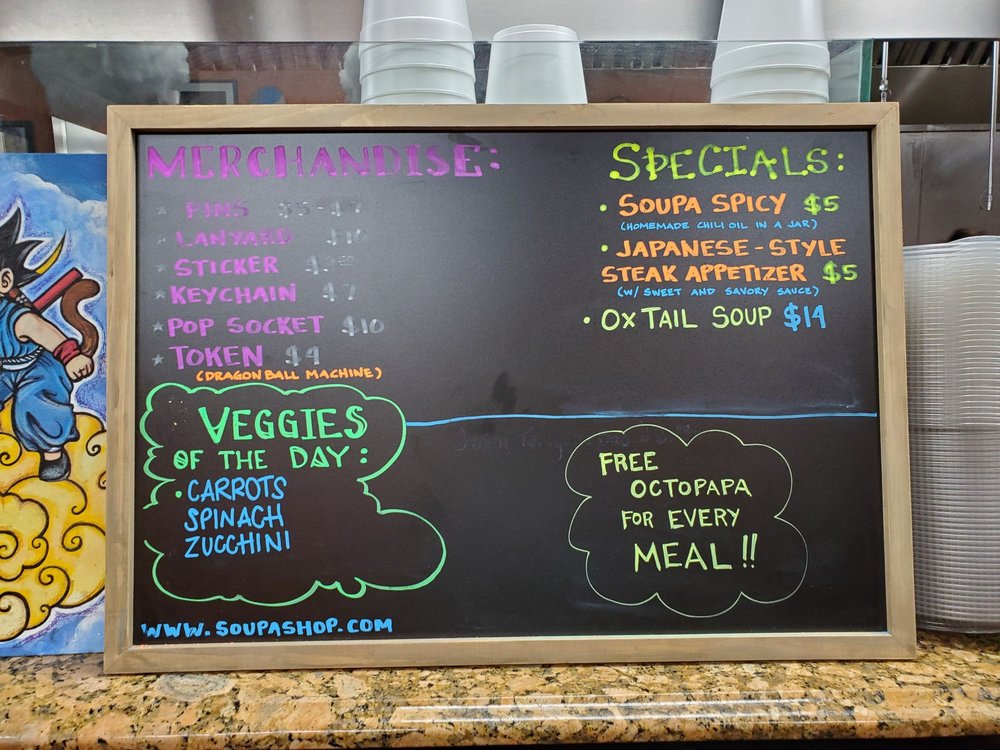 MERCHANDISE:
PINS $5-$7
LANYARD $10
STICKER
KEYCHAIN $7
POP SOCKET $10
TOKEN $4
(DRAGON BALL MACHINE)
VEGGIES
OF THE DAY:
• CARROTS
SPINACH
ZUCCHINI
WWW.SOUPASHOP.COM
SPECIALS:
• SOUPA SPICY $5
(HOMEMADE CHILI OIL IN A JAR)
• JAPANESE-STYLE
STEAK APPETIZER $5
(W/ SWEET AND SAVORY SAUCE)
• OX TAIL SOUP $14
FREE
OCTOPAPA
FOR EVERY
MEAL!!